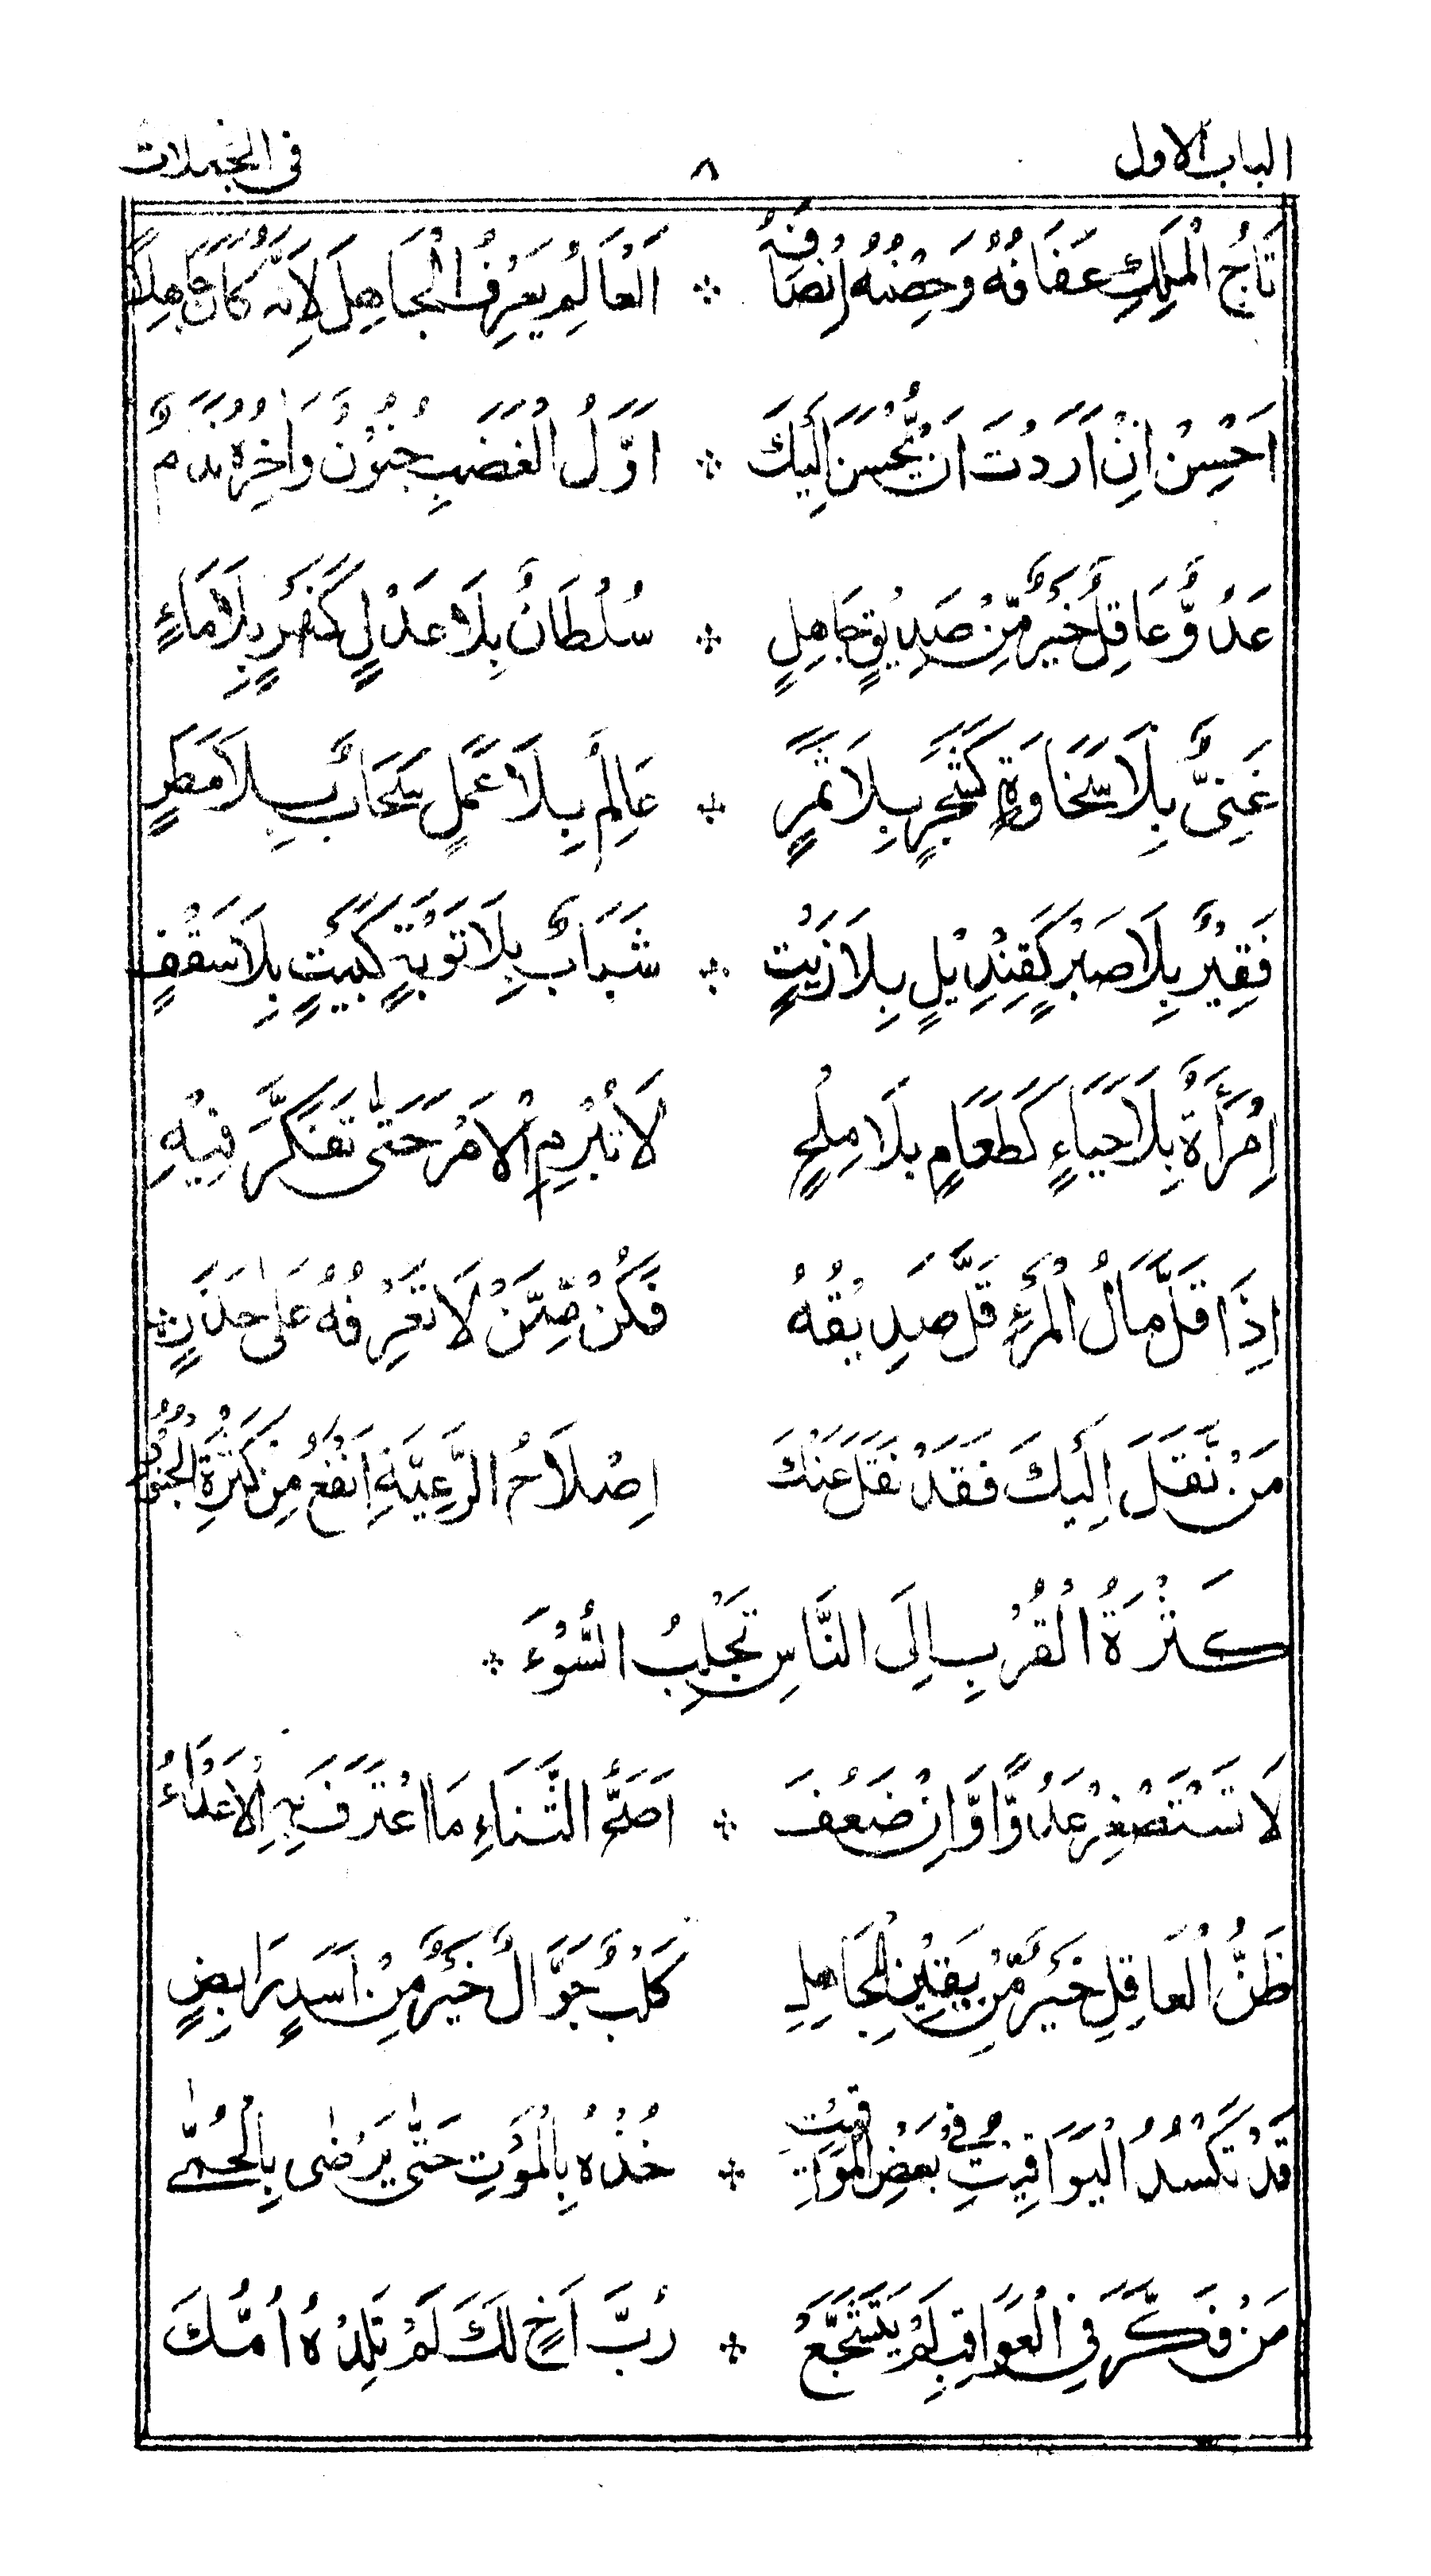 الباب الاول ٨ فى الجملات
تَاجُ الْمَلِكِ عَفَافُهُ وَحِصْنُهُ اِنْصَافُهُ ❊ اَلْعَالِمُ يَعْرِفُ الْجَاهِلَ لِاَنَّهُ كَانَ جَاهِلًا
اَحْسِنْ اِنْ اَرَدْتَ اَنْ يُّحْسَنَ اِلَيْكَ ❊ اَوَّلُ الْغَضَبِ جُنُوْنٌ وَاٰخِرُهُ نَدَمٌ
عَدُوٌّ عَاقِلٌ خَيْرٌ مِّنْ صَدِيْقٍ جَاهِلٍ ❊ سُلْطَانٌ بِلَا عَدْلٍ كَنَهْرٍ بِلَا مَاءٍ
غَنِىٌّ بِلَا سَخَاوَةٍ كَشَجَرٍ بِلَا ثَمَرٍ ❊ عَالِمٌ بِلَا عَمَلٍ كَسَحَابٍ بِلَا مَطَرٍ
فَقِيْرٌ بِلَا صَبْرٍ كَقِنْدِيْلٍ بِلَا زَيْتٍ ❊ شَبَابٌ بِلَا تَوْبَةٍ كَبَيْتٍ بِلَا سَقْفٍ
اِمْرَأَةٌ بِلَا حَيَاءٍ كَطَعَامٍ بِلَا مِلْحٍ لَا تُبْرِمِ الْاَمْرَ حَتّٰى تَفَكَّرَ فِيْهِ
اِذَا قَلَّ مَالُ الْمَرْءِ قَلَّ صَدِيْقُهُ فَكُنْ مِّمَّنْ لَا تَعْرِفُهُ عَلٰى حَذَرٍ
مَنْ نَّقَلَ اِلَيْكَ فَقَدْ نَقَلَ عَنْكَ اِصْلَاحُ الرَّعِيَّةِ اَنْفَعُ مِنْ كَثْرَةِ الْجُنُوْدِ
كَثْرَةُ الْقُرْبِ اِلَى النَّاسِ تَجْلِبُ السُّوْءَ ❊
لَا تَسْتَصْغِرْ عَدُوًّا وَّاِنْ ضَعُفَ ❊ اَصَحُّ الثَّنَاءِ مَا اعْتَرَفَ بِهِ الْاَعْدَاءُ
ظَنُّ الْعَاقِلِ خَيْرٌ مِّنْ يَقِيْنِ الْجَاهِلِ كَلْبٌ جَوَّالٌ خَيْرٌ مِنْ اَسَدٍ رَابِضٍ
قَدْ تَكْسُدُ الْيَوَاقِيْتُ فِىْ بَعْضِ الْمَوَاقِيْتِ ❊ خُذْهُ بِالْمَوْتِ حَتّٰى يَرْضٰى بِالْحُمّٰى
مَنْ فَكَّرَ فِى الْعَوَاقِبِ لَمْ يَتَشَجَّعْ ❊ رُبَّ اَخٍ لَكَ لَمْ تَلِدْهُ اُمُّكَ